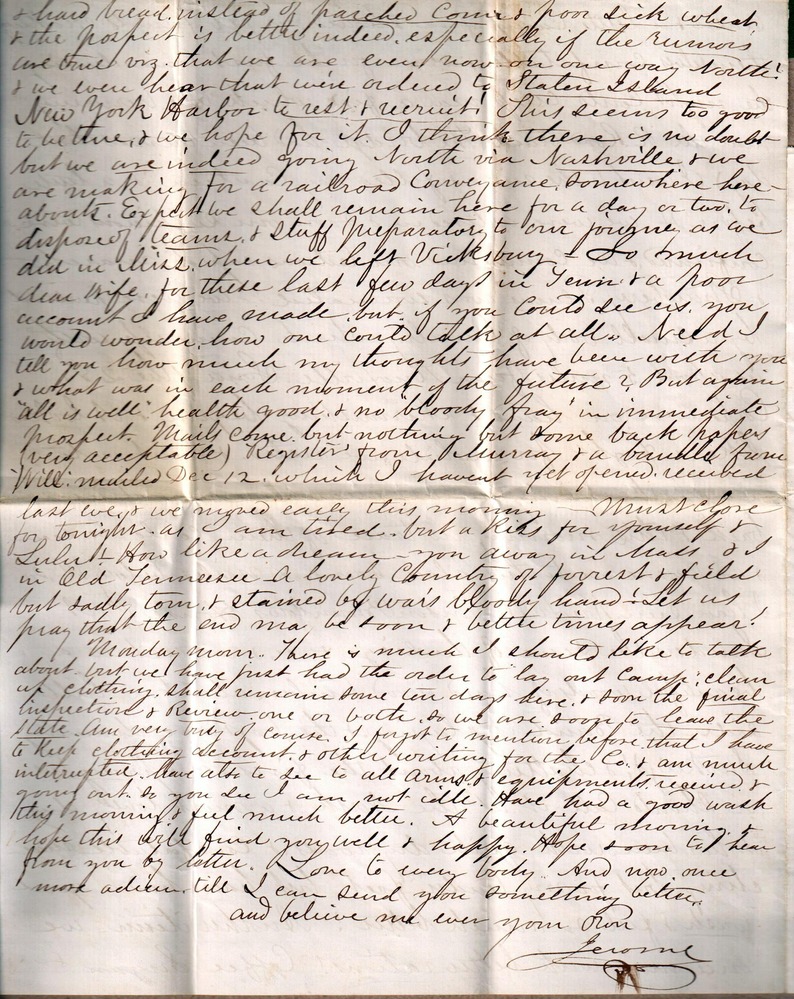 & hard bread, instead of parched corn & poor sick wheat
& the pospect is better indeed, especially if the rumors
are true viz. that we are even now on our way North!
& we even hear that we're ordered to Staten Island
New York Harbor to rest & recruit! This seems too good
to be true, & we hope for it. I think there is no doubt
but we are indeed going North via Nashville & we
are making for a railroad Conveyance, somewhere here-
abouts. Expect we shall remain here for a day or two, to
dispose of teams, & stuff preparatory to our journey as we
did in Miss. when we left Vicksburg - So much
dear Wife, for these last few days in Tenn & a poor
account I have made, but if you could see us, you
would wonder, how one could talk at all. Need I
tell you how much my thoughts have been with you
& what was in each moment of the future? But again
"all is well" health good, & no 'bloody fray' in immediate
prospect. Mails come, but nothing but some back papers
(very acceptable) Register from Murray & a bundle from
Will: mailed Dec 12. which I havent yet opened. received
last eve, & we moved early this morning - Must close
for tonight, as I am tired, but a kiss for yourself &
Lulu - How like a dream - you away in Mass & I
in Old Tennessee - A lovely Country of forrest & field
but sadly torn, & stained by war's bloody hand! Let us
pray that the end ma be soon & better times appear!
Monday morn. There is much I should like to talk
about, but we have just had the order to lay out Camp; clean
up clothing, shall remain some ten days here, & soon the final
inspection & Review, one or both, so we are soon to leave the
state. Am very busy of course. I forgot to mention before, that I have
to keep clothing account, & other writing for the Co. & am much
interrupted. have also to see to all arms & equipments, received &
going out, so you see I am not idle. Have had a good wash
this morning & feel much better. A beautiful morning &
hope this will find you well & happy. Hope soon to hear
from you by letter. Love to every body. And now once
more adieu, till I can send you something better,
and believe me ever your own
Jerome